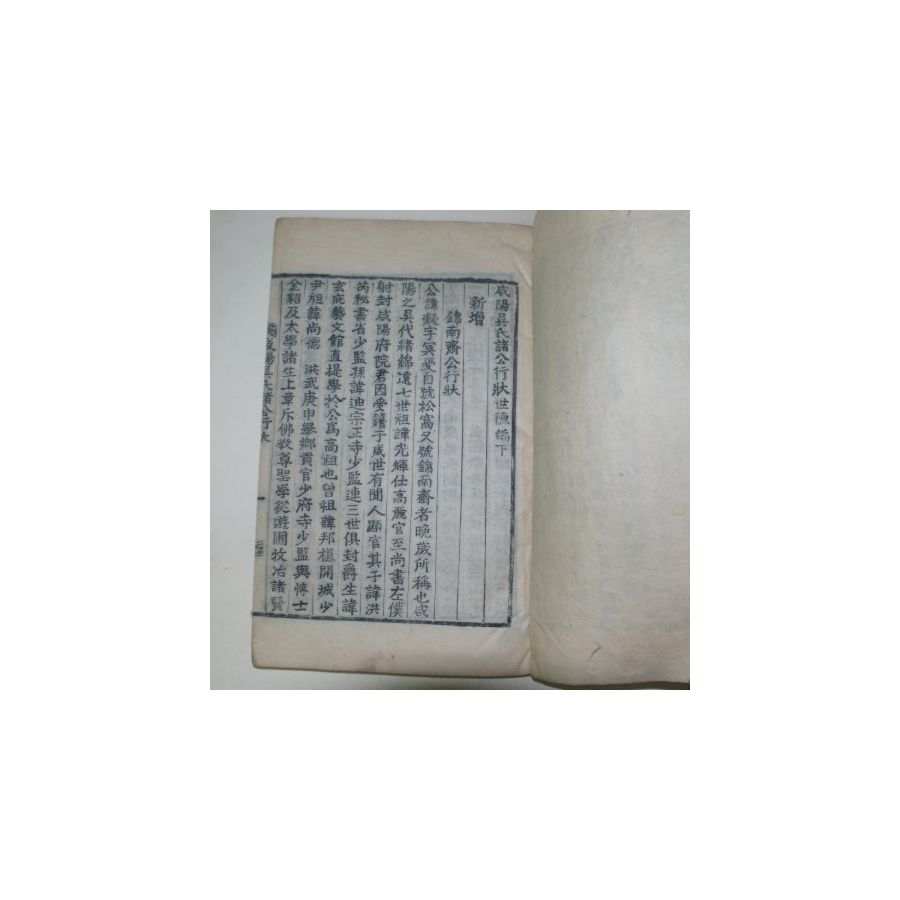 咸陽吳氏諸公行狀世德編下
新增
錦南齋公行狀
公諱凝字冥受自號松窩又號錦南齋者晚歲所稱也咸
陽之吳代緒綿遠七世祖諱光輝仕高麗官至尚書左僕
射封咸陽府院君因受籍于咸世有聞人顯官其子諱洪
芮秘書省少監孫諱迪宗正寺少監連三世俱封爵生諱
玄庇藝文館直提學於公爲高祖也曾祖諱邦植開城少
尹祖諱尚德 洪武庚申舉鄉貢官少府寺少監與博士
金貂及太學諸生上章斥佛教尊聖學從遊圃牧冶諸賢
咸陽吳氏諸公行狀